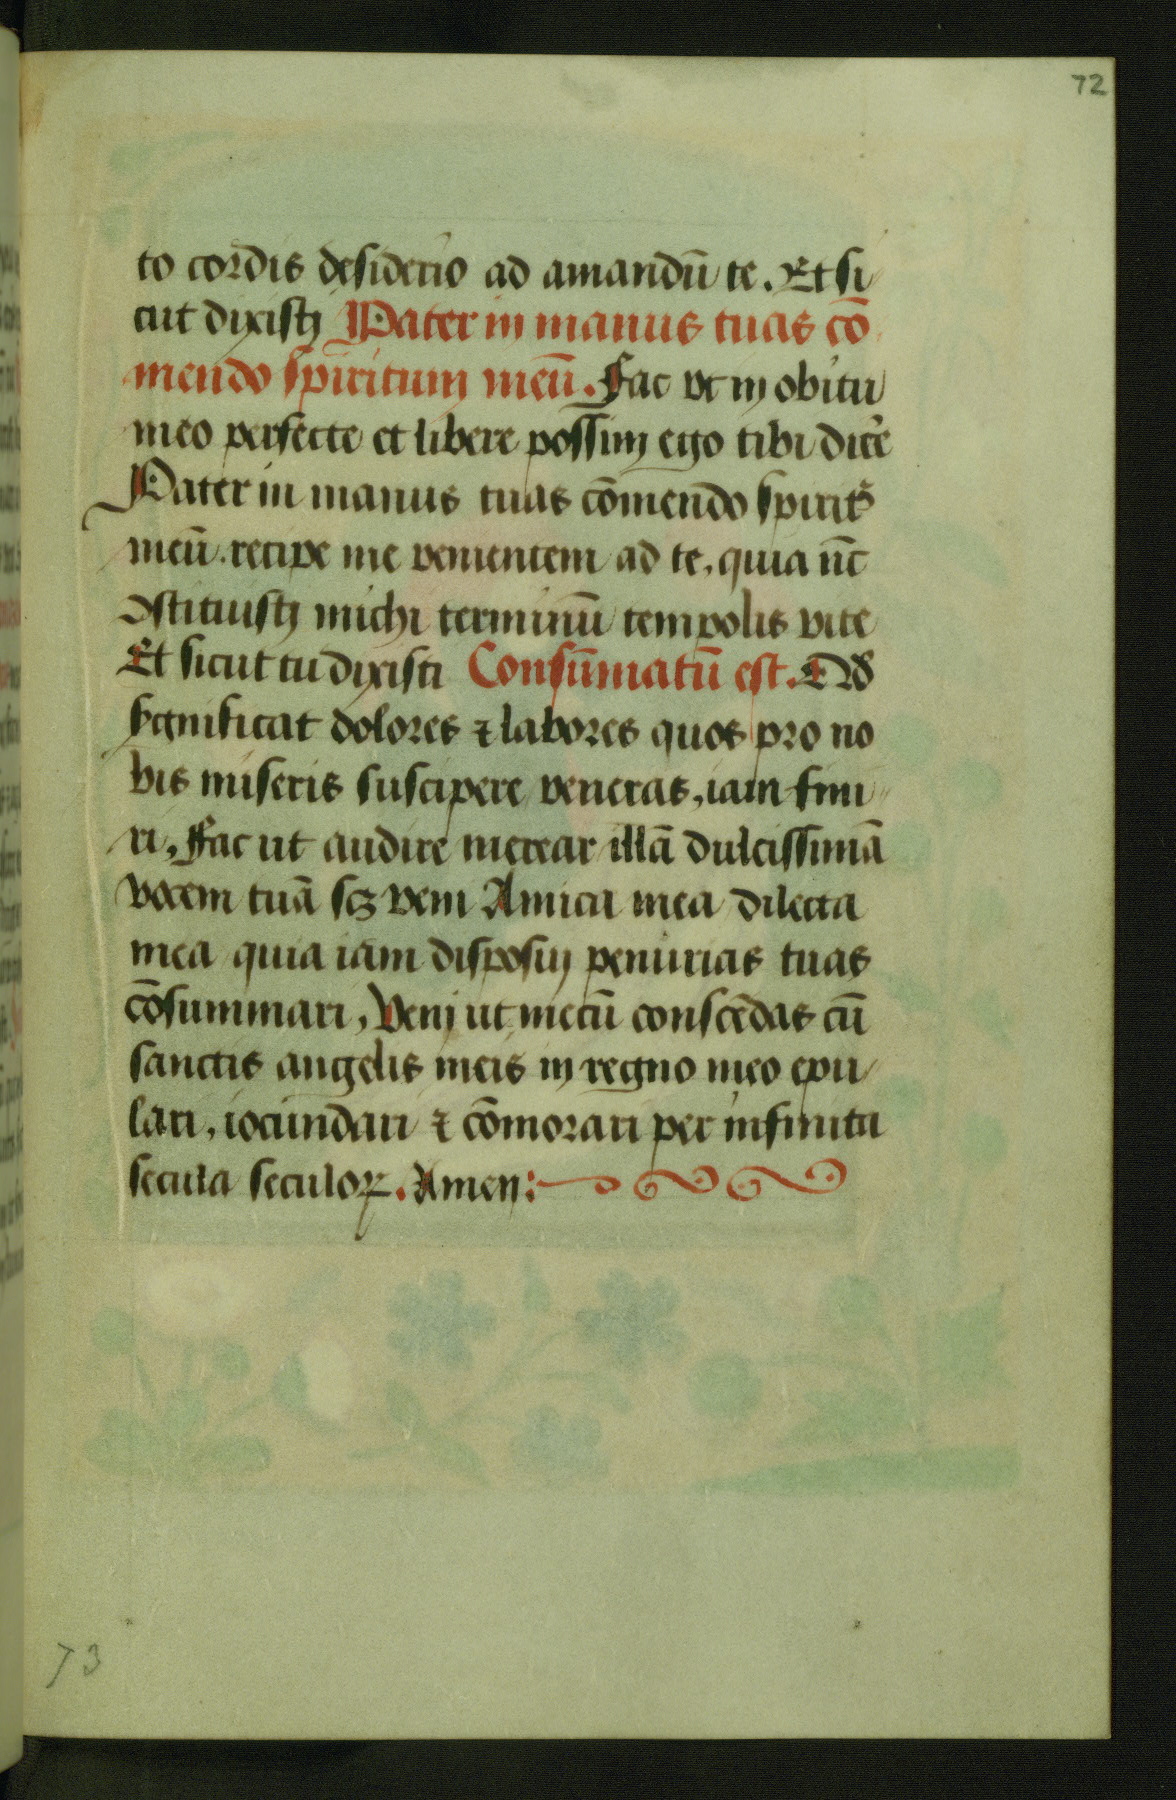 72
to cordis desiderio ad amandū te. Et si
cut dixisti Pater in manus tuas cō
mendo spiritum meū. Fac vt in obitu
meo perfecte et libere possim ego tibi dic̄e
Pater in manus tuas cōmendo spirit᷒
meū. recipe me venientem ad te, quia nūc
ꝯstituisti michi terminū tempolis vite
Et sicut tu dixisti Consūmatū est. Qd̄
significat dolores ⁊ labores quos pro no
bis miseris suscipere veneras, iam fini
ri, Fac ut audire merear illā dulcissimā
vocem tuā scꝫ veni Amica mea dilecta
mea quia iam disposui penurias tuas
cōsummari, Veni ut mecū conscēdas cū
sanctis angelis meis in regno meo epu
lari, iocundari ⁊ cōmorari per infinita
secula seculoꝝ. Amen:
73